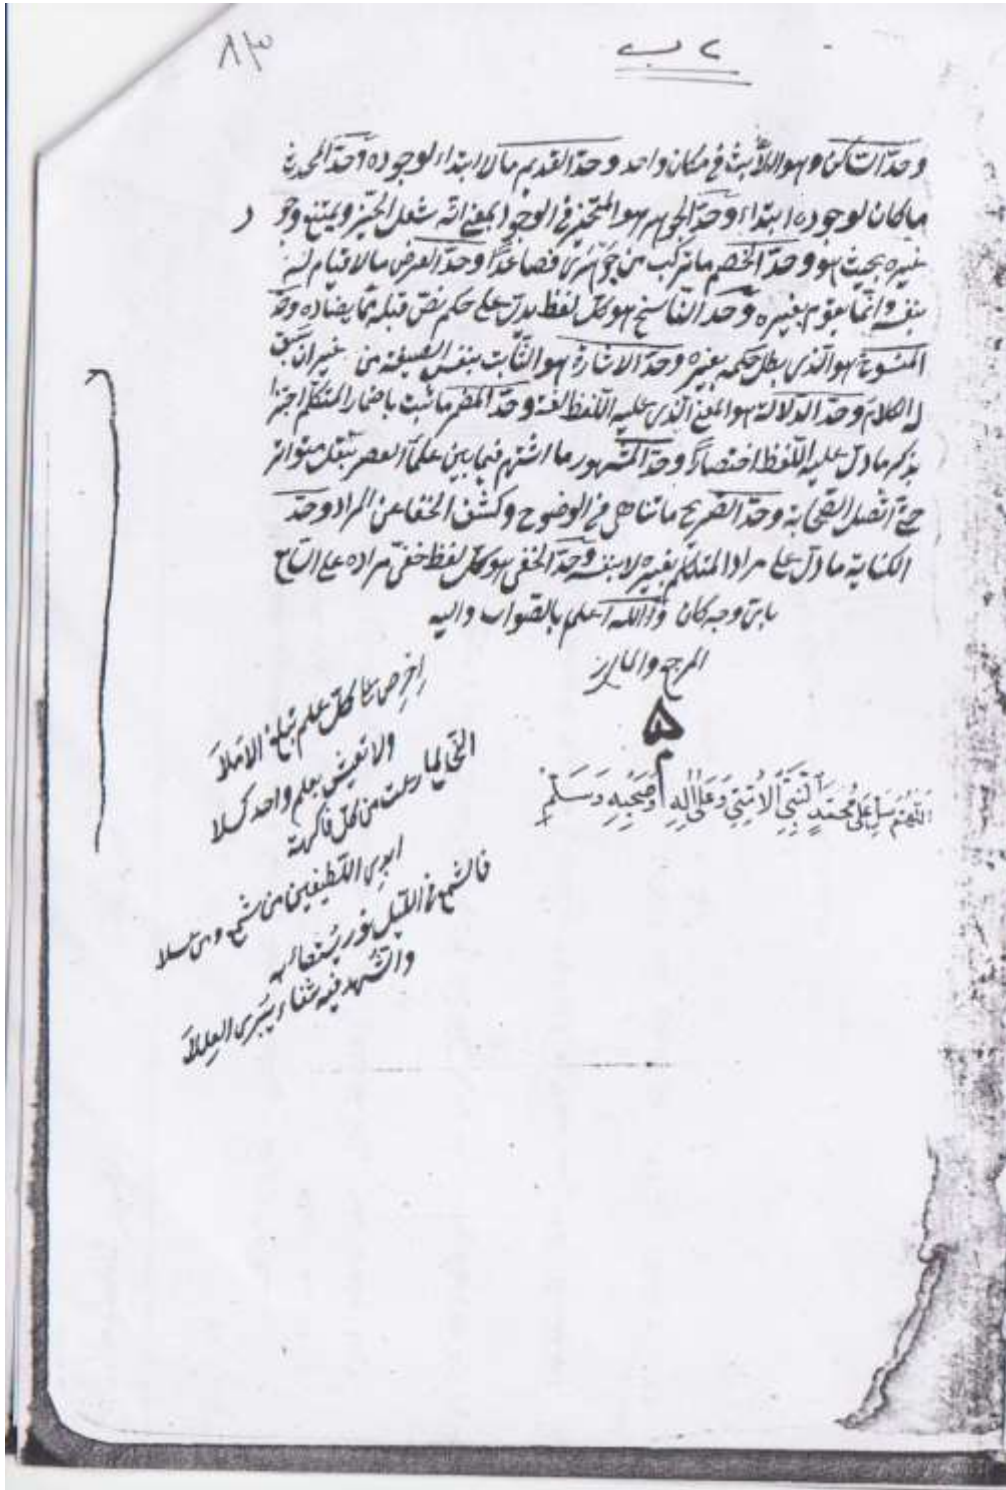 ٨٣
٢ ب
وحدّ الساكن وهو اللابث في مكان واحد وحدّ القديم مالا ابتداء لوجوده وحدّ المحدث
ماكان لوجوده ابتداء وحدّ الجوهر هو المتحيز في الوجود بمعنى انه شغل الحيّز ويمتنع وجود
غيره بحيث هو وحدّ الخصم ما تركب من جوهرى فصاعدًا وحدّ العرض مالا قيام له
بنفسه وانّما يقوم بغيره وحدّ الناسخ هو كلّ لفظ يدل على حكم نصّ قبله بما يضاده وحدّ
المنسوخ هو الذي بطل حكمه بغيره وحدّ الاشارة هو الثّابت بنفس الصيغة من غير ان سبق
له الكلام وحدّ الدلالة هو المعنى الذي عليه اللفظ لغة وحدّ المضمر ما ثبت باضمار المتكلم اجتزا
بذكر مادلّ عليه اللفظ اختصارًا وحدّ المشهور ما اشتهر فيما بين علماء العصر بنقل متواتر
حتّى اتصل الصحابة وحدّ الصريح ما تناهى في الوضوح وكشف الخفا عن المراد وحدّ
الكناية مادلّ على مراد المتكلم بغيره لا بنفسه وحدّ الخفى هو كلّ لفظ خفى مراده على السامع
باىّ وجه كان والله اعلم بالصّواب واليه
المرجع والمآب
م
اللّٰهُمَّ صَلِّ عَلَى مُحَمَّدٍ النَّبِيِّ الْأُمِّيِّ وَعَلَى اٰلِهِ وَصَحْبِهِ وَسَلَّمْ
اِحْرِص على كلّ علم تبلغ الامَلاَ
ولا تعيش بعلم واحد كسلا
النحل لما رعت من كلّ فاكهة
ابدى اللطيفين من شمع ومن عسلا
فالشمع في الليل نور يستضاء به
والشهد فيه شفاء يُبْرى العِلَلاَ